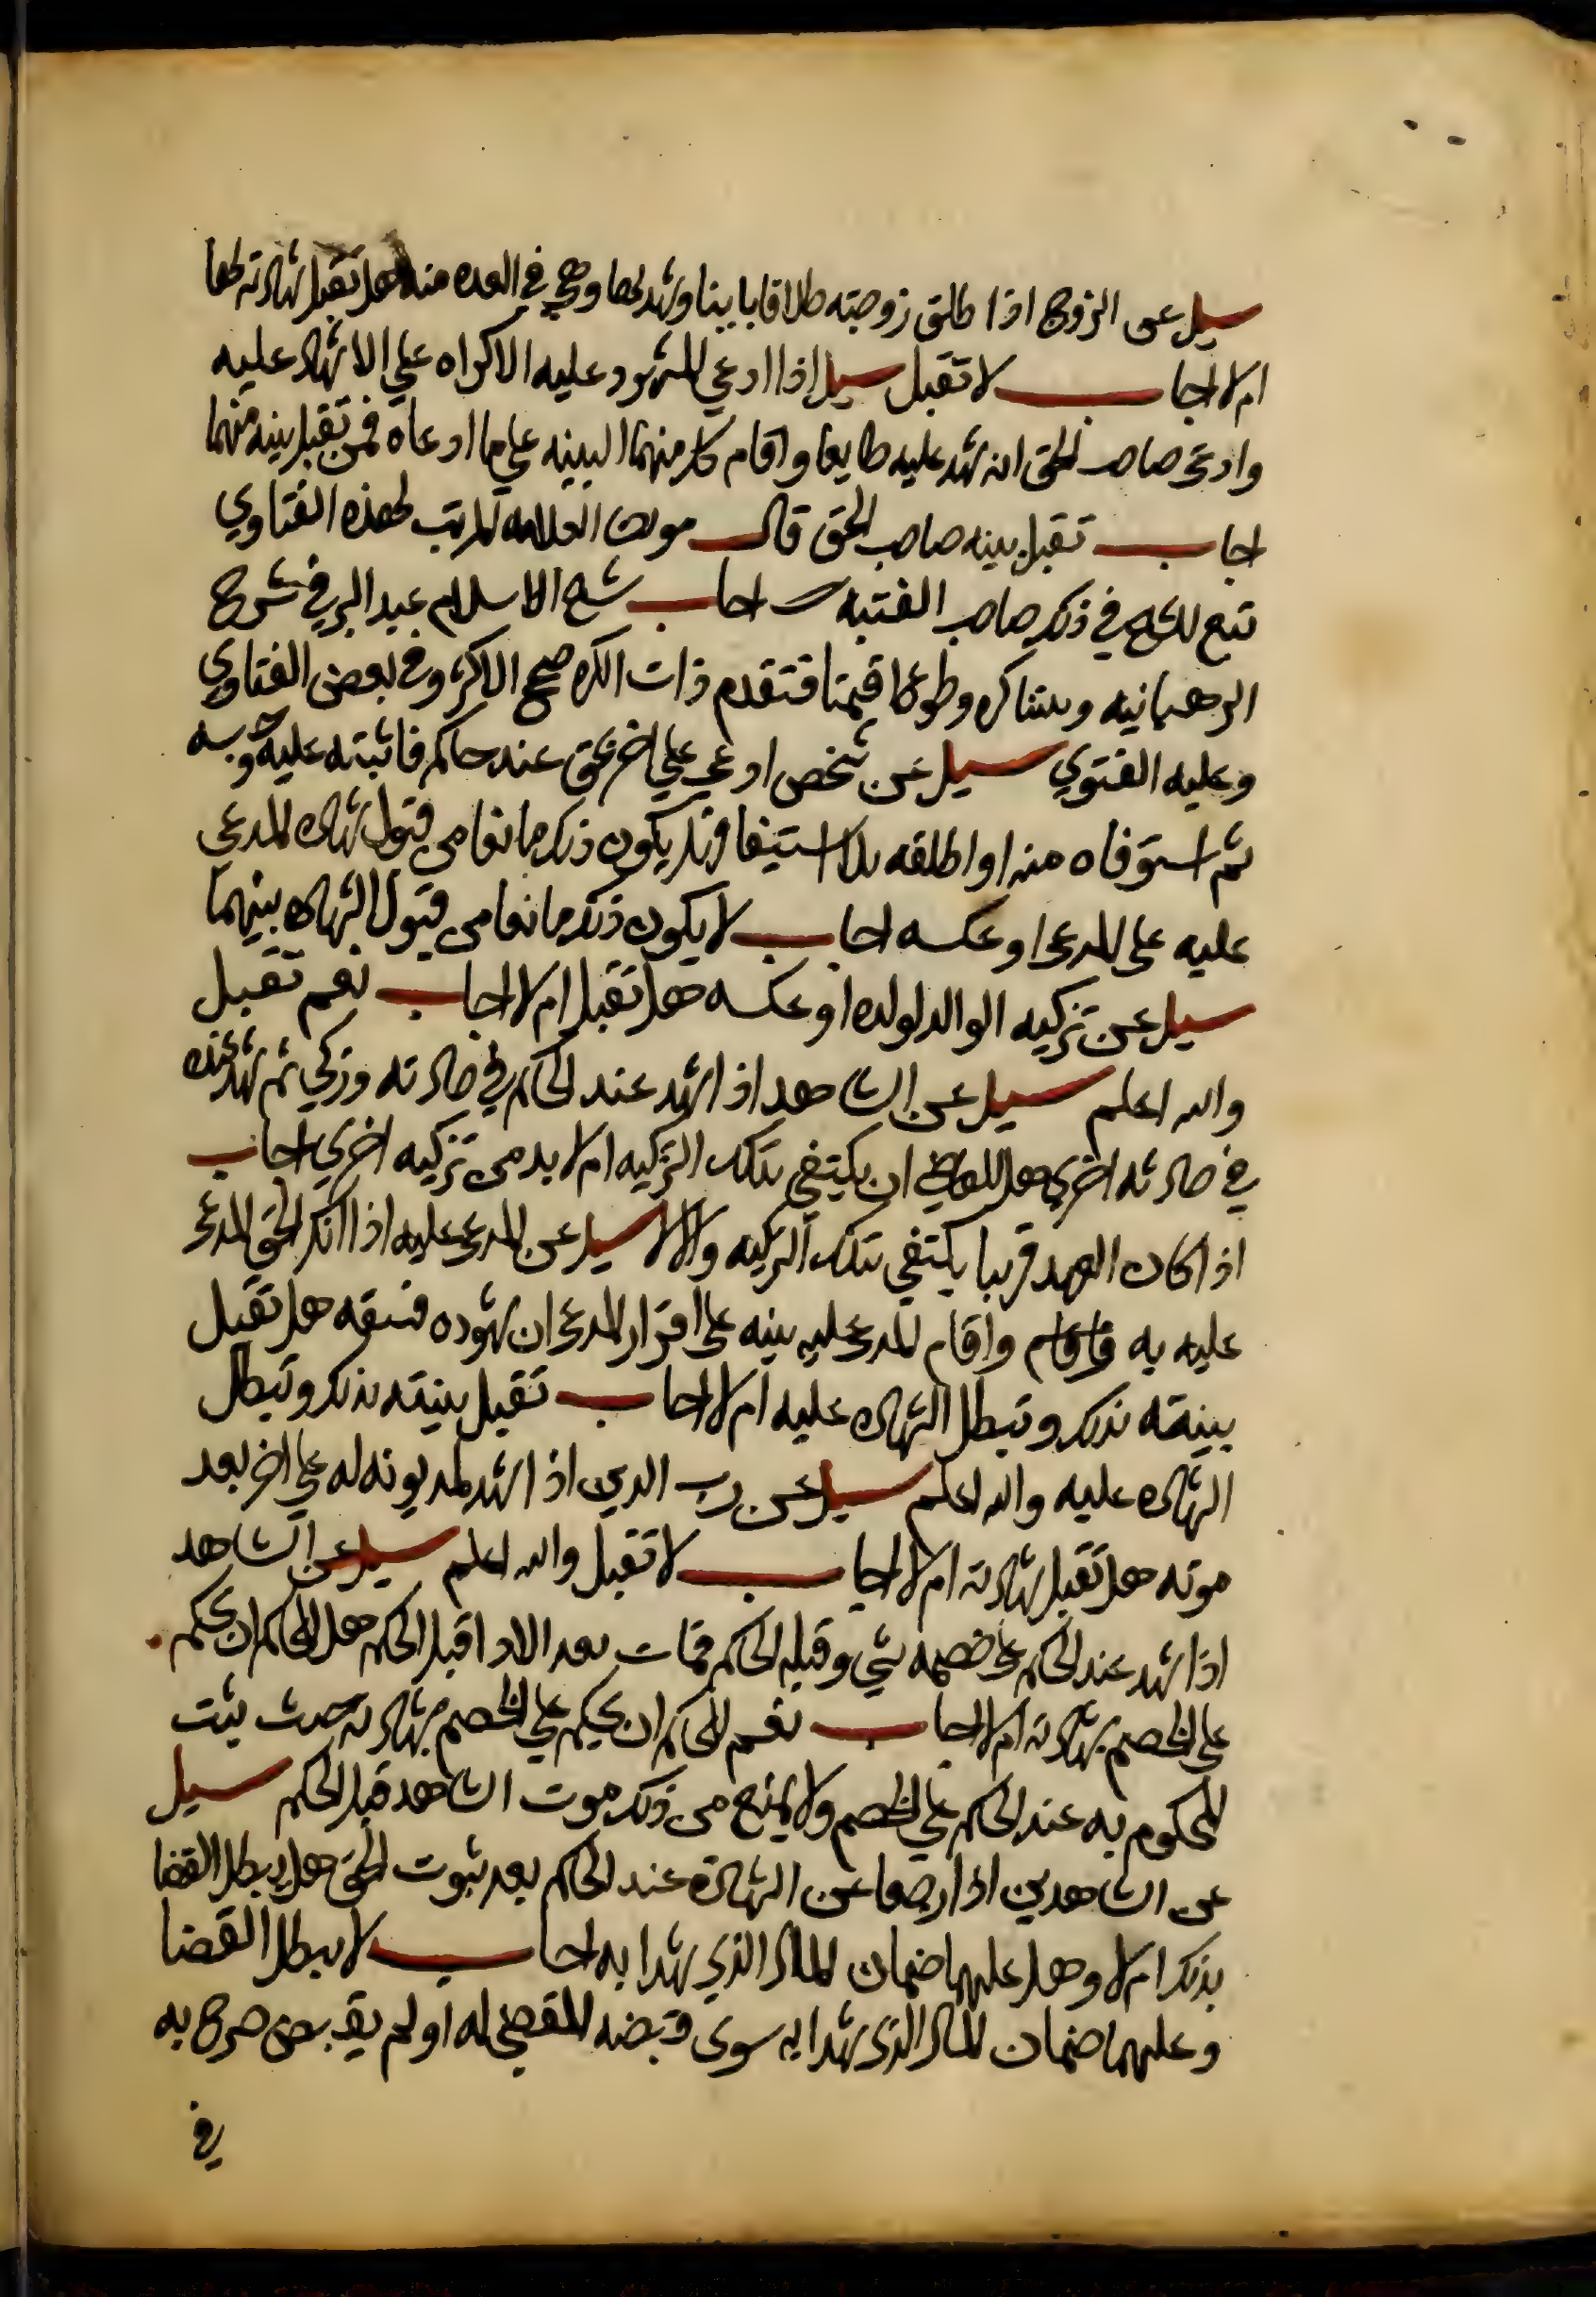 سيل عن الزوج اذا طلق زوجته طلاقا باينا وشهد لها وهي في العده منه هل تقبل شهادته لها
ام لا اجاب لا تقبل سيل اذا ادعي المشهود عليه الاكراه علي الاشهاد عليه
وادعى صاحب الحق انه شهد عليه طايعا واقام كل منهما البينه علي ما ادعاه فمن تقبل بينه منهما
اجاب تقبل بينه صاحب الحق قال مولانا العلامه المرتب لهذه الفتاوي
تبع الشيخ في ذلك صاحب القنيه اجاب شيخ الاسلام عبد البر في شرح
الوهبانيه وبينتا كره وطوع اقيمتا فتقدم ذات الكره صحح الاكثر وفي بعض الفتاوي
وعليه الفتوي سيل عن شخص ادعي علي اخر بحق عند حاكم فاثبته عليه وحبسه
ثم استوفاه منه او اطلقه بلا استيفا فهل يكون ذلك مانعا من قبول شهاده المدعي
عليه على المدعى او عكسه اجاب لا يكون ذلك مانعا من قبول الشهاده بينهما
سيل عن تزكيه الوالد لولده او عكسه هل تقبل ام لا اجاب نعم تقبل
والله اعلم سيل عن الشاهد اذا شهد عند الحاكم في حادثه وزكي ثم شهد عنده
في حادثه اخري هل للقاضي ان يكتفي بتلك التزكيه ام لا بد من تزكيه اخري اجاب
اذا كان العهد قريبا يكتفي بتلك التزكيه والا لا سيل عن المدعى عليه اذا انكر الحق المدعى
عليه به فاقام واقام المدعى عليه بينه على اقرار المدعى ان شهوده فسقه هل تقبل
بينته بذلك وتبطل الشهاده عليه ام لا اجاب تقبل بينته بذلك وتبطل
الشهاده عليه والله اعلم سيل عن رب الدين اذا شهد لمديونه له علي اخر بعد
موته هل تقبل شهادته ام لا اجاب لا تقبل والله اعلم سيل عن الشاهد
اذا شهد عند الحاكم على خصمه بشي وقبله الحاكم فمات بعد الادا قبل الحكم هل للحاكم ان يحكم
على الخصم بشهادته ام لا اجاب نعم للحاكم ان يحكم علي الخصم بشهادته حيث يثبت
المحكوم به عند الحاكم علي الخصم ولا يمنع من ذلك موت الشاهد قبل الحكم سيل
عن الشاهدين اذا رجعا عن الشهادة عند الحاكم بعد ثبوت الحق هل يبطل القضا
بذلك ام لا وهل عليهما ضمان المال الذي شهدا به اجاب لا يبطل القضا
وعليهما ضمان المال الذي شهدا به سوى قبضه المقضي له او لم يقبض صرح به
في